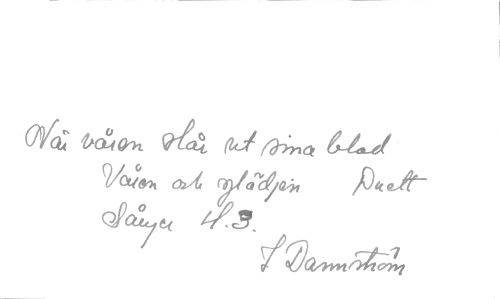 När våren slår ut sina blad
Våren och glädjen Duett
Sånger H.3.
I Dannström